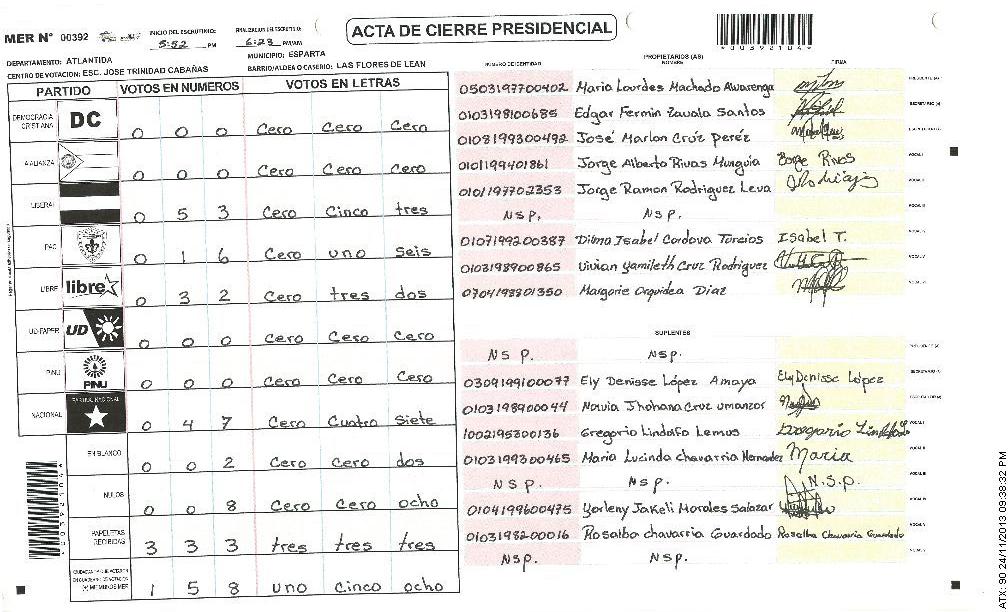 ACTA DE CIERRE PRESIDENCIAL
MER N° 00392
INICIO DEL ESCRUTINIO: 5:52 PM
FINALIZACION DEL ESCRUTINIO: 6:23 PM/AM
DEPARTAMENTO: ATLANTIDA
MUNICIPIO: ESPARTA
CENTRO DE VOTACION: ESC. JOSE TRINIDAD CABAÑAS
BARRIO/ALDEA O CASERIO: LAS FLORES DE LEAN
PARTIDO VOTOS EN NUMEROS VOTOS EN LETRAS
DEMOCRACIA CRISTIANA DC 0 0 0 Cero Cero Cero
ALIANZA 0 0 0 Cero Cero Cero
LIBERAL 0 5 3 Cero Cinco tres
PAC 0 1 6 Cero uno seis
LIBRE libre 0 3 2 Cero tres dos
UD-FAPER UD 0 0 0 Cero Cero Cero
PINU PINU 0 0 0 Cero Cero Cero
NACIONAL PARTIDO NACIONAL 0 4 7 Cero Cuatro siete
EN BLANCO 0 0 2 Cero Cero dos
NULOS 0 0 8 Cero Cero ocho
PAPELETAS RECIBIDAS 3 3 3 tres tres tres
(+) MIEMBROS MER 1 5 8 uno Cinco ocho
PROPIETARIOS (AS)
NUMERO DE IDENTIDAD NOMBRE FIRMA
0503197700402 Maria Lourdes Machado Alvarenga PRESIDENTE (A)
0103198100685 Edgar Fermin Zavala Santos SECRETARIO (A)
0108199300492 José Marlon Cruz perez ESCRUTADOR (A)
0101199401861 Jorge Alberto Rivas Munguia Jorge Rivas VOCAL I
0101197702353 Jorge Ramon Rodriguez Leva VOCAL II
NSP. NSP. VOCAL III
0107199200387 Dilma Isabel Cordova Turcios Isabel T. VOCAL IV
0103198900865 Vivian Yamileth Cruz Rodriguez VOCAL V
0704198801350 Margorie Orquidea Diaz VOCAL VI
SUPLENTES
NSP. NSP. PRESIDENTE (A)
0309199100077 Ely Denisse López Amaya Ely Denisse López SECRETARIO (A)
0103198900044 Nowia Jhohana Cruz umanzor ESCRUTADOR (A)
1002195300136 Gregorio Lindolfo Lemus VOCAL I
0103199300465 Maria Lucinda chavarria Hernandez Maria VOCAL II
NSP. NSP. N.S.p. VOCAL III
0104199600475 Yorleny Jakeli Morales Salazar VOCAL IV
0103198200016 Rosalba chavarria Guardado Rosalba Chavarria Guardado VOCAL V
NSP. NSP. VOCAL VI
ATX: 90 24/11/2013 09:38:32 PM